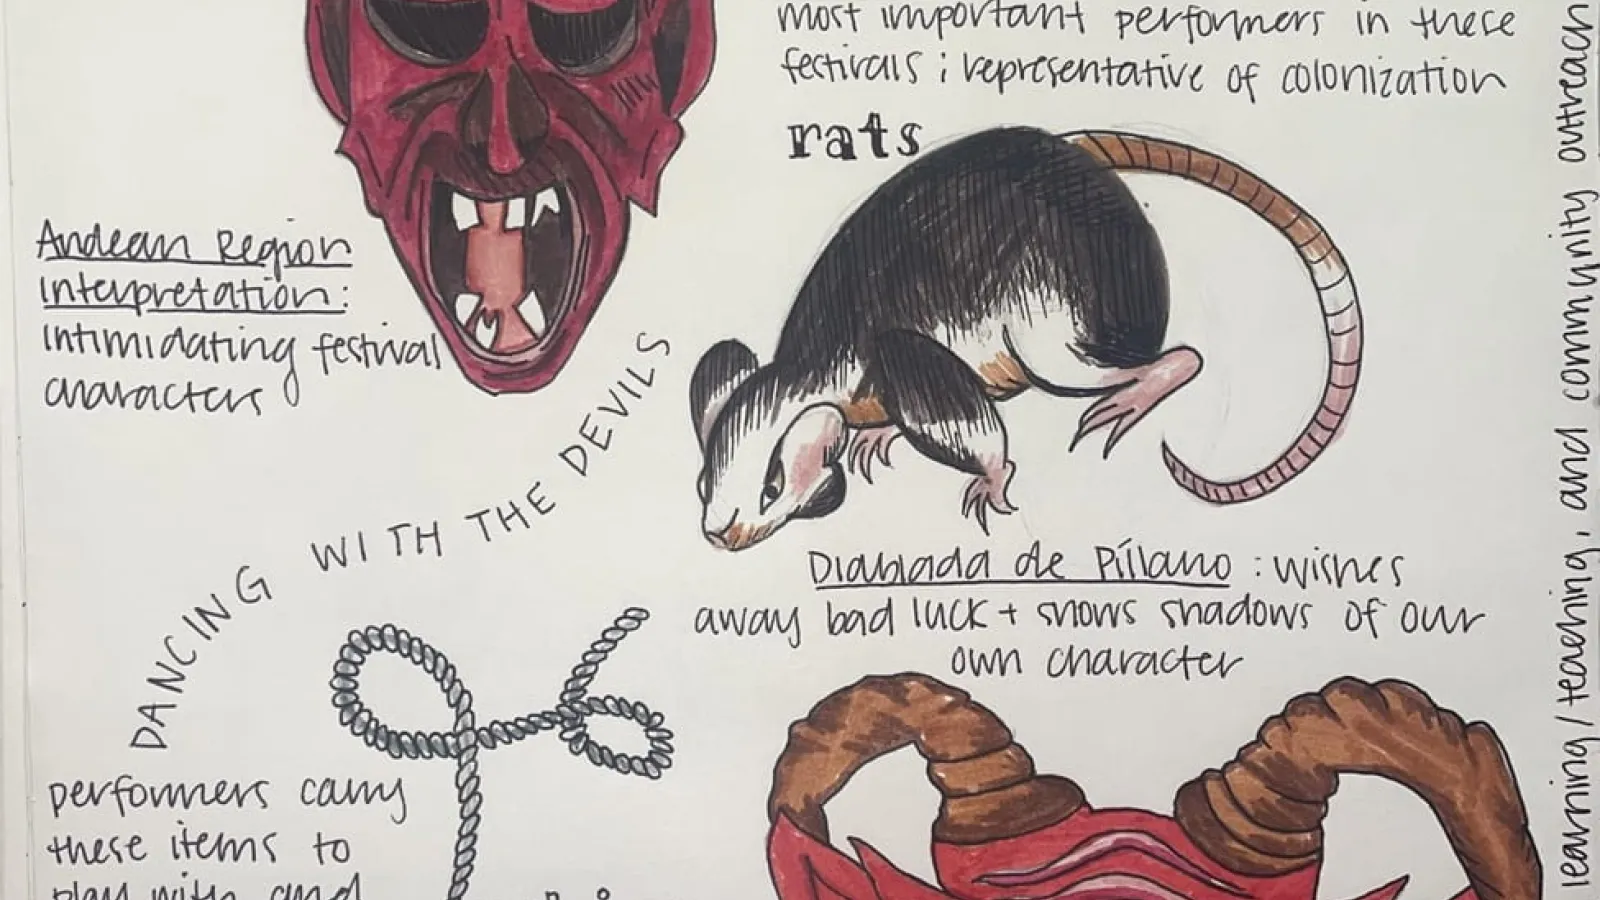 most important performers in these
festivals ; representative of colonization
rats
Andean Region
Interpretation:
Intimidating festival
characters
DANCING WITH THE DEVILS
Diablada de Píllaro : wishes
away bad luck + shows shadows of our
own character
performers carry
these items to
play with and
learning / teaching, and community outreach